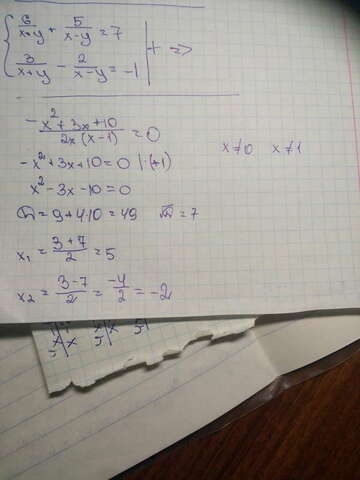 { 6/(x+y) + 5/(x-y) = 7 | + =>
3/(x+y) - 2/(x-y) = -1
(-x²+3x+10)/(2x(x-1)) = 0
x≠0 x≠1
-x²+3x+10=0 |·(-1)
x²-3x-10=0
D=9+4·10=49 √D=7
x₁ = (3+7)/2 = 5
x₂ = (3-7)/2 = -4/2 = -2